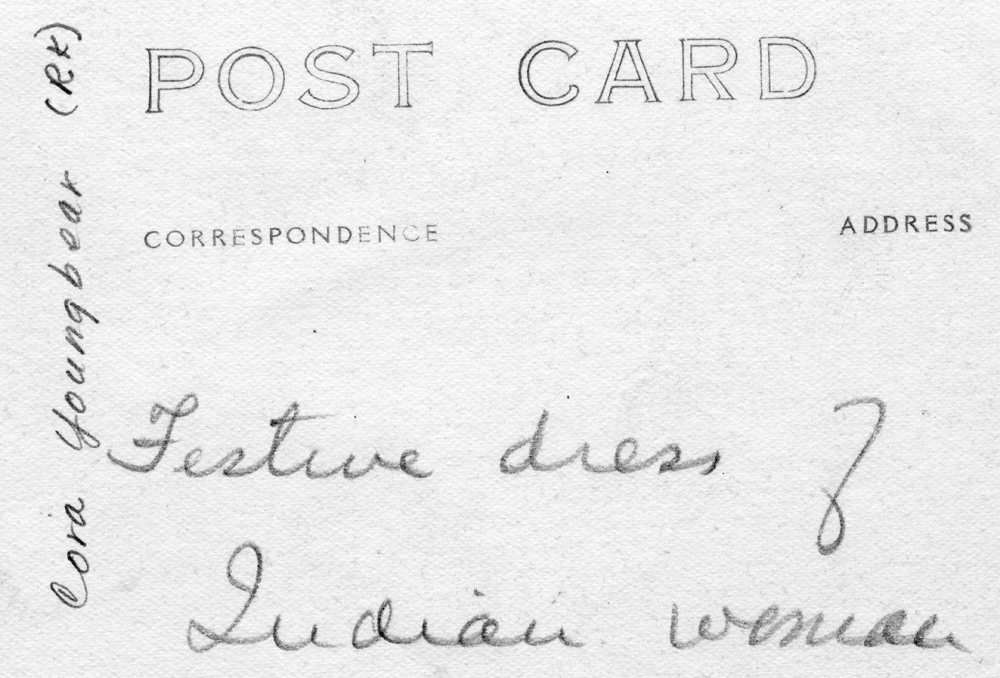 POST CARD
CORRESPONDENCE
ADDRESS
Festive dress of
Indian woman
Cora Youngbear (RK)